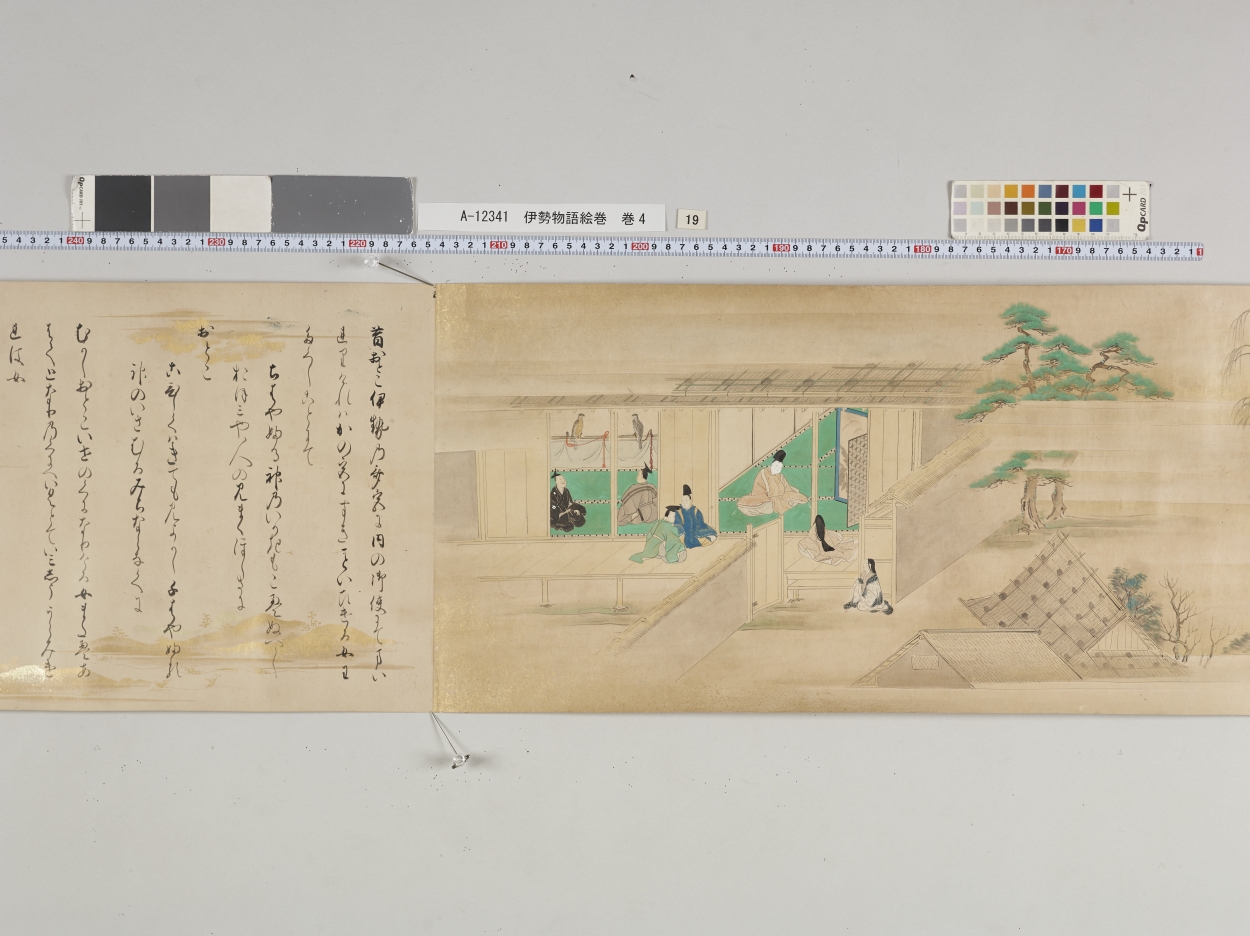 A-12341 伊勢物語絵巻 巻4
19
昔おとこ伊勢乃斎宮に内の御使にてまい
れりけれはかの宮にすきこといひける女わ
たくしことにて
ちはやふる神乃いかきもこえぬへし
おほみや人の見まくほしさに
おとこ
こひしくはきてもみよかし千はやふる
神のいさむるみちならなくに
むかしおとこいせのくになりける女またえあ
はてとなりのくにへいくとていみしううらみけ
れは女